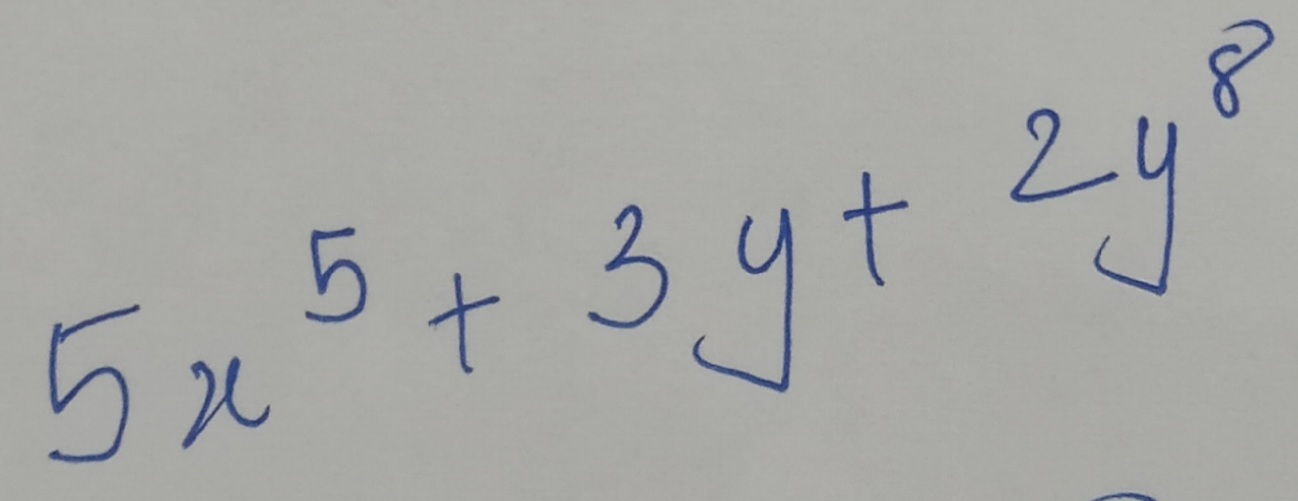 5x⁵ + 3y + 2y⁸